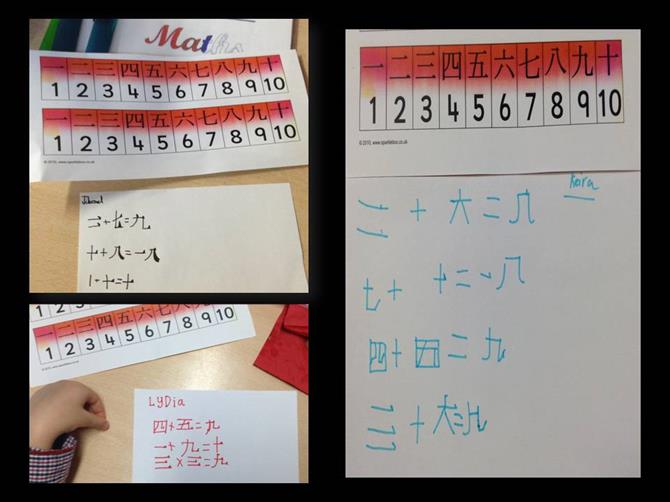 Maths
一 二 三 四 五 六 七 八 九 十
1 2 3 4 5 6 7 8 9 10
一 二 三 四 五 六 七 八 九 十
1 2 3 4 5 6 7 8 9 10
© 2010, www.sparklebox.co.uk
二+七=九
十+八=一八
一 二 三 四 五 六 七 八 九 十
1 2 3 4 5 6 7 8 9 10
LYDia
四+五=九
一+九=十
三×三=九
一 二 三 四 五 六 七 八 九 十
1 2 3 4 5 6 7 8 9 10
© 2010, www.sparklebox.co.uk
Kara
三 + 六 = 八
七 + 十 = 一八
四 + 五 = 九
三 + 六 = 九